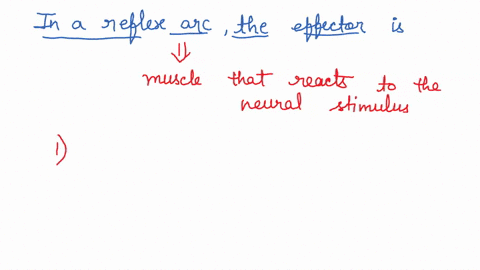 In a reflex arc, the effector is
⇓
muscle that reacts to the
neural stimulus
1)